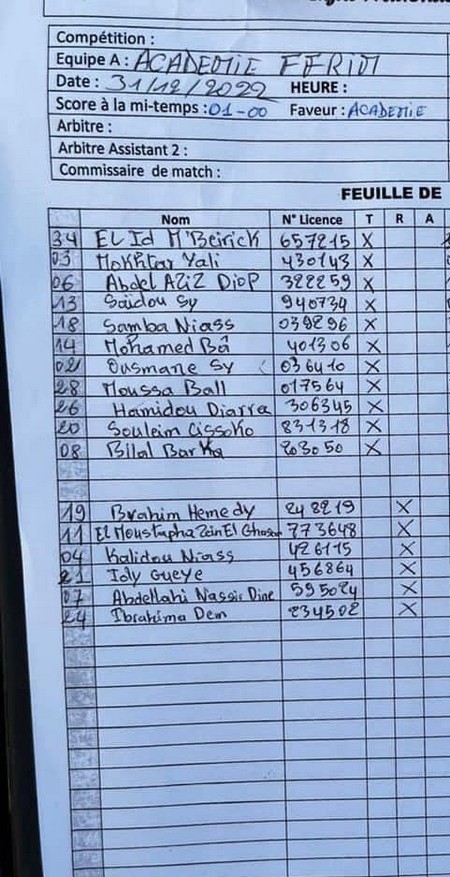 Compétition :
Equipe A : ACADEMIE FFRIM
Date : 31/12/2022 HEURE :
Score à la mi-temps : 01-00 Faveur : ACADEMIE
Arbitre :
Arbitre Assistant 2 :
Commissaire de match :
FEUILLE DE
Nom N° Licence T R A
34 El Id M'Beirick 657215 X
03 Mokhtar Yali 430143 X
06 Abdel Aziz Diop 322259 X
13 Saidou Sy 940734 X
18 Samba Niass 039296 X
14 Mohamed Bâ 401306 X
02 Ousmane Sy 036410 X
28 Moussa Ball 017564 X
26 Hamidou Diarra 306345 X
20 Souleim Cissoko 831318 X
08 Bilal Barka 203050 X
19 Brahim Hemedy 248219 X
11 El Moustapha Zein El Ghasem 773648 X
04 Kalidou Niass 426115 X
21 Idy Gueye 456864 X
07 Abdellahi Nassir Dine 595024 X
24 Ibrahima Dem 234502 X